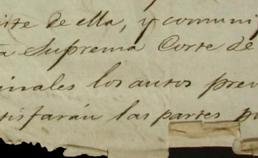 de ella, y comuni
Suprema Corte de
nales los autos prev
isfarán las partes